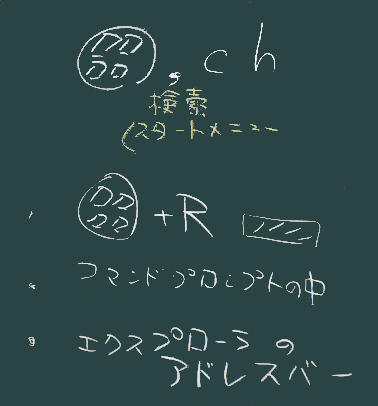 , ch
検索
(スタートメニュー
+R
コマンドプロンプトの中
エクスプローラの
アドレスバー